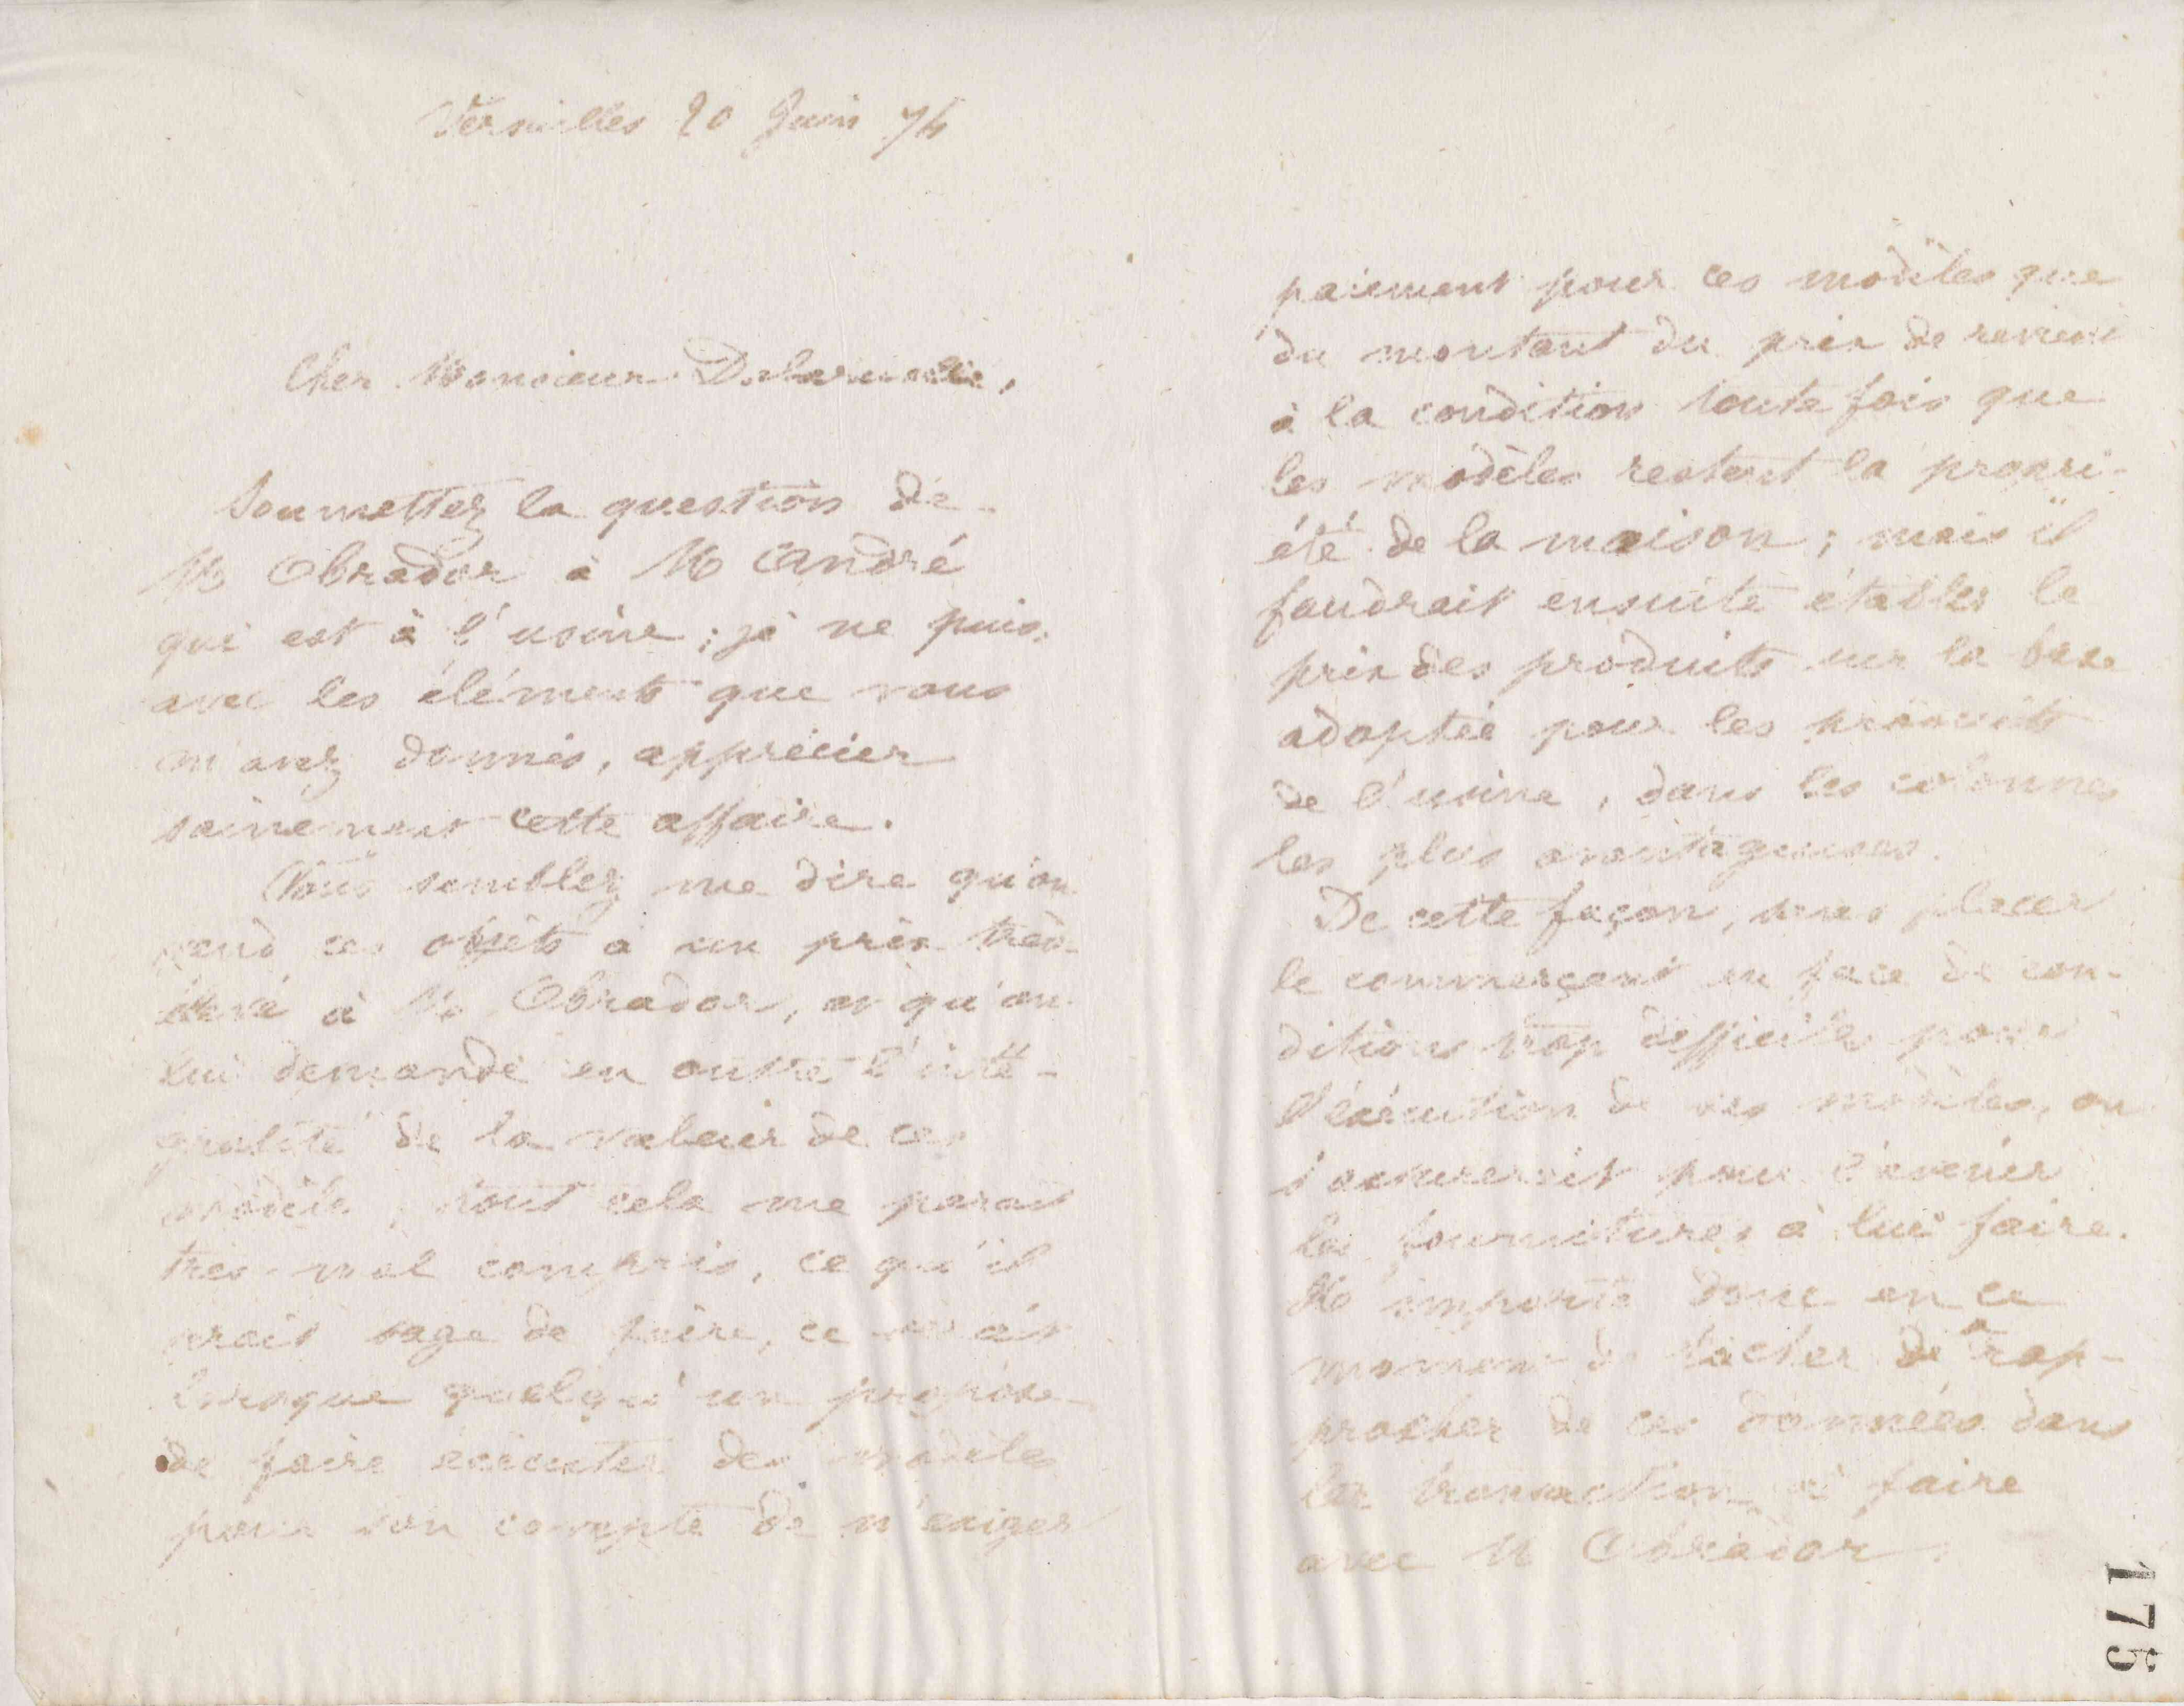 Versailles 20 Juin 74
Cher Monsieur
Soumettez la question de
M Obrador à M André
qui est à l'usine ; je ne puis,
avec les éléments que vous
m'avez donnés, apprécier
sainement cette affaire.
Vous semblez me dire qu'on
vend ces objets à un prix très
élevé à M. Obrador, et qu'on
lui demande en outre l'inté-
gralité de la valeur de ces
modèles, tout cela me parait
très mal compris, ce qu'il
serait sage de faire, ce serait
lorsque quelqu'un propose
de faire exécuter des modèles
pour son compte de n'exiger
paiement pour ces modèles que
du montant du prix de revient
à la condition toutefois que
les modèles restent la propri-
été de la maison ; mais il
faudrait ensuite établir le
prix des produits sur la base
adoptée pour les produits
de l'usine, dans les colonnes
les plus avantageuses.
De cette façon, sans placer
le commerçant en face de con-
ditions trop difficiles pour
l'exécution de ses modèles, on
s'assurerait pour l'avenir
les fournitures à lui faire.
Il importe donc en ce
moment de tâcher de rap-
procher de ces données dans
la transaction à faire
avec M Obrador.
175